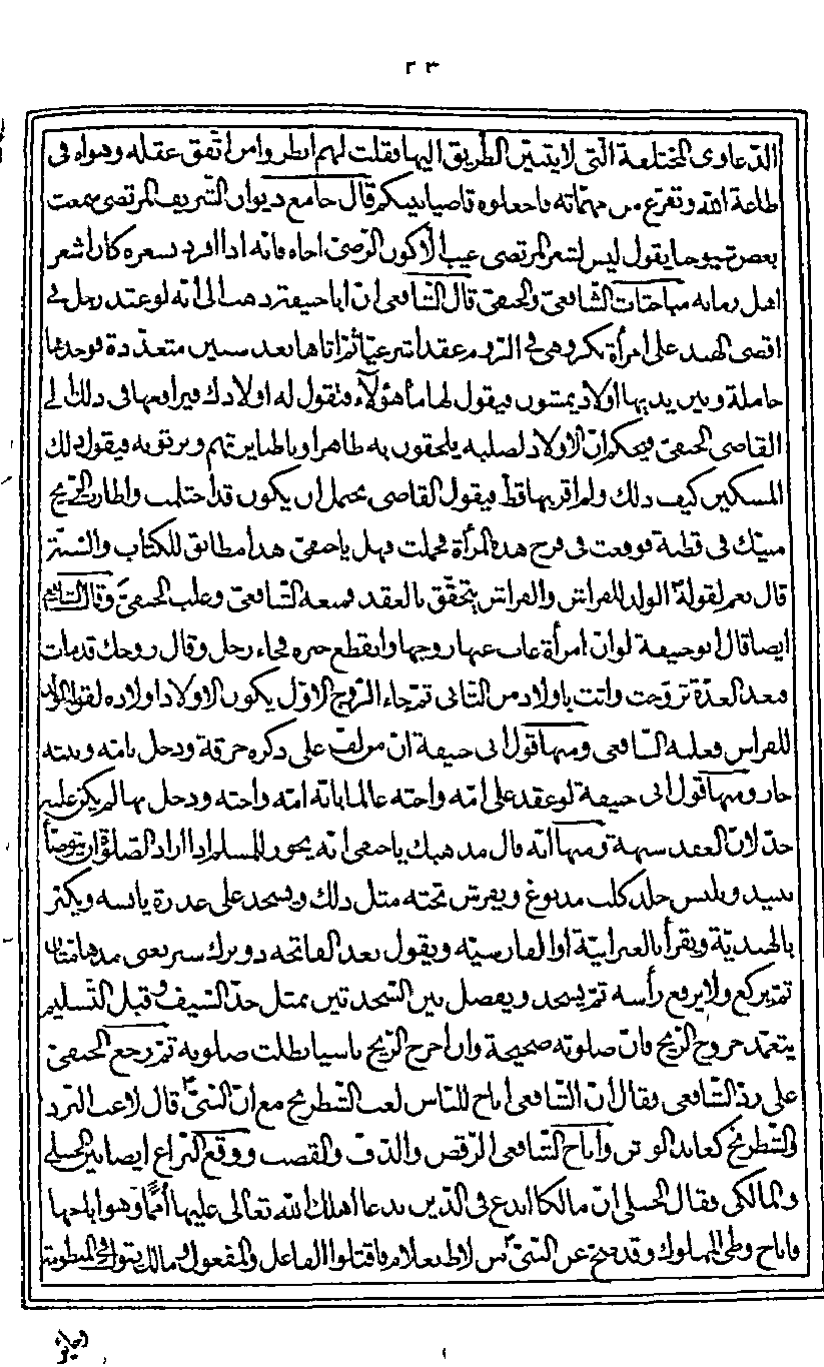 ٢٣
الدعاوى المختلفة التى لا يتبين الطريق اليها فقلت لهم انظروا من اتفق عقله وهواه فى
طاعة الله وتفرغ من مهماته فاجعلوه قاضيا بينكم قال جامع ديوان الشريف المرتضى سمعت
بعض شيوخنا يقول ليس لشعر المرتضى عيب الا كون الرضى اخاه فانه اذا افرد بشعره كان اشعر
اهل زمانه مباحثات الشافعى والحنفى قال الشافعى ان ابا حنيفة ذهب الى انه لو عقد رجل فى
اقصى الهند على امرأة بكر وهى فى الروم عقدا شرعيا ثم اتاها بعد سنين متعددة فوجدها
حاملة وبين يديها اولاد يمشون فيقول لها ما هؤلاء فتقول له اولادك فيرافعها فى ذلك الى
القاضى الحنفى فيحكم ان الاولاد لصلبه يلحقون به ظاهرا وباطنا يرثهم ويرثونه فيقول ذلك
المسكين كيف ذلك ولم اقربها قط فيقول القاضى يحتمل ان يكون قد احتلمت واطارت الريح
منيّك فى قطنة فوقعت فى فرج هذه المرأة فحملت فهل يا حنفى هذا مطابق للكتاب والسنة
قال نعم لقوله الولد للفراش والفراش يتحقق بالعقد فمنعه الشافعى وغلب الحنفى وقال الشافعى
ايضا قال ابو حنيفة لو ان امرأة غاب عنها زوجها وانقطع خبره فجاء رجل وقال زوجك قد مات
فبعد العدة تزوجت واتت باولاد من الثانى ثم جاء الزوج الاول يكون الاولاد اولاده لقوله الولد
للفراش فغلبه الشافعى ومنها قول ابى حنيفة ان من لف على ذكره خرقة ودخل بامه وبنته
جاز ومنها قول ابى حنيفة لو عقد على امه واخته عالما بانه امه واخته ودخل بها لم يكن عليه
حد لان العقد شبهة ومنها انه قال مذهبك يا حنفى انه يجوز للمسلم اذا اراد الصلوة ان يتوضأ
بنبيذ ويلبس جلد كلب مدبوغ ويفرش تحته مثل ذلك ويسجد على عذرة يابسة ويكبر
بالهندية ويقرأ بالعبرانية او الفارسية ويقول بعد الفاتحه دو برك سبز يعنى مدهامتان
ثم يركع ولا يرفع رأسه ثم يسجد ويفصل بين السجدتين بمثل حد السيف وقبل التسليم
يتعمد خروج الريح فان صلوته صحيحة وان اخرج الريح ناسيا بطلت صلوته ثم رجع الحنفى
على رد الشافعى فقال ان الشافعى اباح للناس لعب الشطرنج مع ان النبى قال لاعب النرد
والشطرنج كعابد الوثن واباح الشافعى الرقص والدف والقصب ووقع النزاع ايضا بين الحنبلى
والمالكى فقال الحنبلى ان مالكا ابدع فى الدين بدعا اهلك الله تعالى عليها امما وهو اباحها
واباح وطى المملوك وقد صح عن النبى من لاط بغلام فاقتلوا الفاعل والمفعول ومالك يقول فى المنظومة